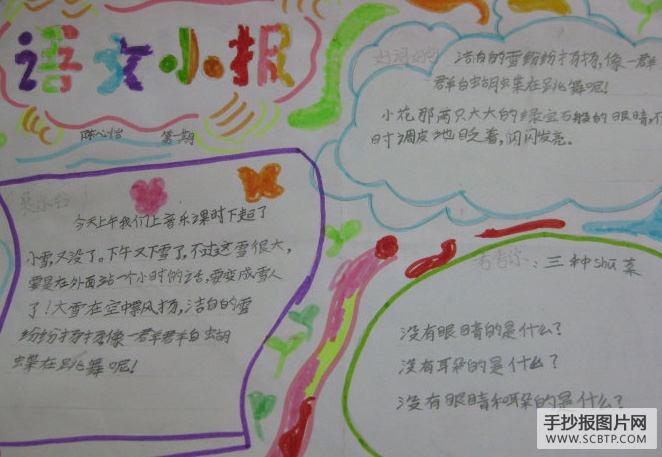 语文小报
陈心怡 第一期
今天上午我们上音乐课时下起了
小雪,又没了。下午又下雪了,不过这雪很大,
要是在外面站一个小时的话,要变成雪人
了!大雪在空中飘扬,洁白的雪
纷纷扬扬像一群群白蝴
蝶在跳舞呢!
好词好句
洁白的雪纷纷扬扬,像一群
群白蝴蝶在跳舞呢!
小花那两只大大的绿宝石般的眼睛,不
时调皮地眨着,闪闪发亮。
考考你:三种shū菜
没有眼睛的是什么?
没有耳朵的是什么?
没有眼睛和耳朵的是什么?
手抄报图片网
WWW.SCBTP.COM